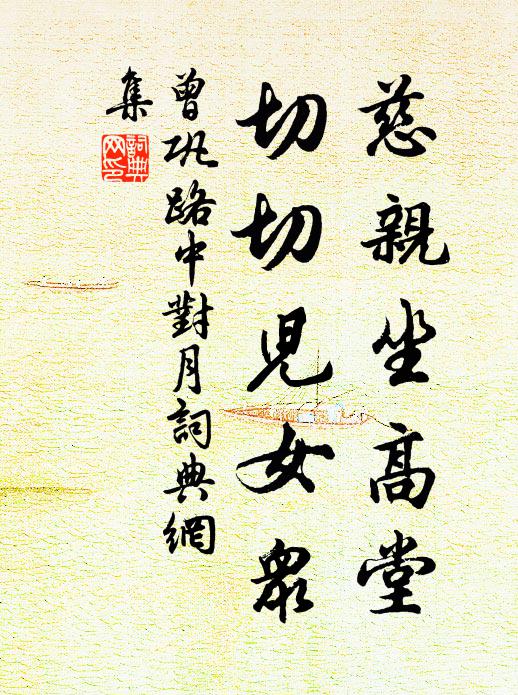 慈親坐高堂
切切兒女眾
曾巩路中對月詞典網
集
詞典
网印